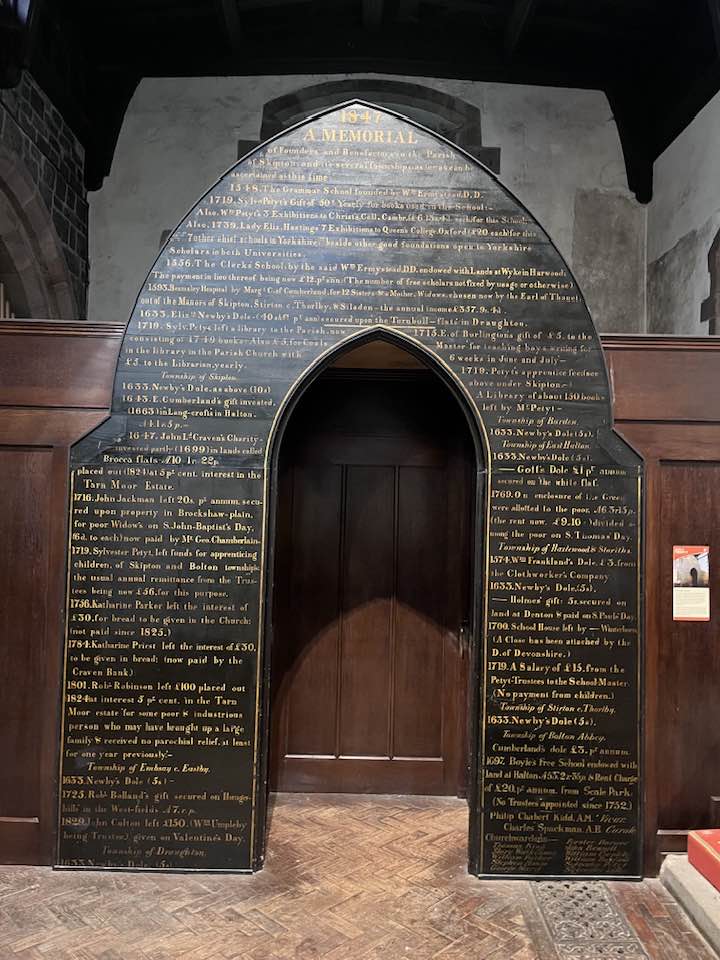 1847
A MEMORIAL
of Founders and Benefactors to the Parish
of Skipton and its several Townships as far as can be
ascertained at this time
1548. The Grammar School founded by Wm Ermystead, D.D.
1719. Sylvr Petyt's Gift of 50s Yearly for books used in the School:-
Also, Wm Petyt's 3 Exhibitions to Christ's Coll. Cambr. each for this School-
Also, 1739. Lady Eliz. Hastings 7 Exhibitions to Queen's College, Oxford (£20 each) for this
7 other chief schools in Yorkshire beside other good foundations open to Yorkshire
Scholars in both Universities.
1556. The Clerk's School, by the said Wm Ermystead, DD. endowed with Lands at Wyke in Harwood:
The payment in lieu thereof being now £12. pr ann (The number of free scholars not fixed by usage or otherwise)
1593. Beamsley Hospital by Margt C. of Cumberland, for 12 Sisters & a Mother, Widows, chosen now by the Earl of Thanet
out of the Manors of Skipton, Stirton c. Thorlby, & Silsden - the annual income £357. 9. 4½
1633. Elizth Newby's Dole (40s & 6d pr ann) secured upon the Turnbull-flatts in Draughton.
1719. Sylv. Petyt left a library to the Parish, now
consisting of 1749 books: Also £3. for Coals
in the library in the Parish Church with
£5. to the Librarian, yearly.
Township of Skipton.
1633. Newby's Dole, as above (10s)
1643. E. Cumberland's gift invested,
(1663) in Lang-crofts in Halton,
£1 5 p.-
1647. John Ld Craven's Charity-
invested partly (1699) in lands called
Brocca flats. £10 1r. 22p.
placed out (1824) at 5 pr cent. interest in the
Tarn Moor Estate.
1716. John Jackman left 20s. pr annum, secu-
red upon property in Brockshaw-plain,
for poor Widows on S. John-Baptist's Day,
(6d. to each) now paid by Mr Geo. Chamberlain.
1719. Sylvester Petyt, left funds for apprenticing
children, of Skipton and Bolton townships:
the usual annual remittance from the Trus-
tees being now £56, for this purpose.
1736. Katharine Parker left the interest of
£30, for bread to be given in the Church:
(not paid since 1825.)
1784. Katharine Priest left the interest of £30,
to be given in bread: (now paid by the
Craven Bank)
1801. Robt Robinson left £100 placed out
1824 at interest 5 pr cent. in the Tarn
Moor estate for some poor & industrious
person who may have brought up a large
family & received no parochial relief, at least
for one year previously:-
Township of Embsay c. Eastby.
1633. Newby's Dole (5s)-
1725. Robt Bolland's gift secured on Hungo
hills in the West-fields .
1829. John Colton left £150. (Wm Umpleby
being Trustee), given on Valentine's Day.
Township of Draughton.
1633. Newby's Dole (5s)
1715. E. of Burlington's gift of £5. to the
Master for teaching boys writing for
6 weeks in June and July-
1719. Petyt's apprentice fees (see
above under Skipton-)
A Library of about 150 books
left by Mr Petyt-
Township of Barden.
1633. Newby's Dole (5s).
Township of East Halton.
1633. Newby's Dole (5s).
- Goff's Dole £1 pr annum
secured on the white flat.
1769. On enclosure of the Green
were allotted to the poor,
(the rent now, £9.10-) divided a-
mong the poor on S. Thomas' Day.
Township of Hazlewood & Storiths.
1574. Wm Frankland's Dole, £3. from
the Clothworker's Company
1633. Newby's Dole. (5s).
- Holmes' gift: 5s. secured on
land at Denton & paid on S. Pauls' Day.
1700. School House left by - Winterburn
(A Close has been attached by the
D. of Devonshire.)
1719. A Salary of £15. from the
Petyt-Trustees to the School-Master
(No payment from children.)
Township of Stirton c. Thorlby.
1633. Newby's Dole (5s).
Township of Bolton Abbey.
Cumberland's dole £3. pr annum.
1697. Boyle's Free School endowed with
land at Halton & Rent Charge
of £20. pr annum. from Scale Park.
(No Trustees appointed since 1752.)
Philip Chabert Kidd, A.M. Vicar.
Charles Spackman, A.B. Curate
Churchwardens:-